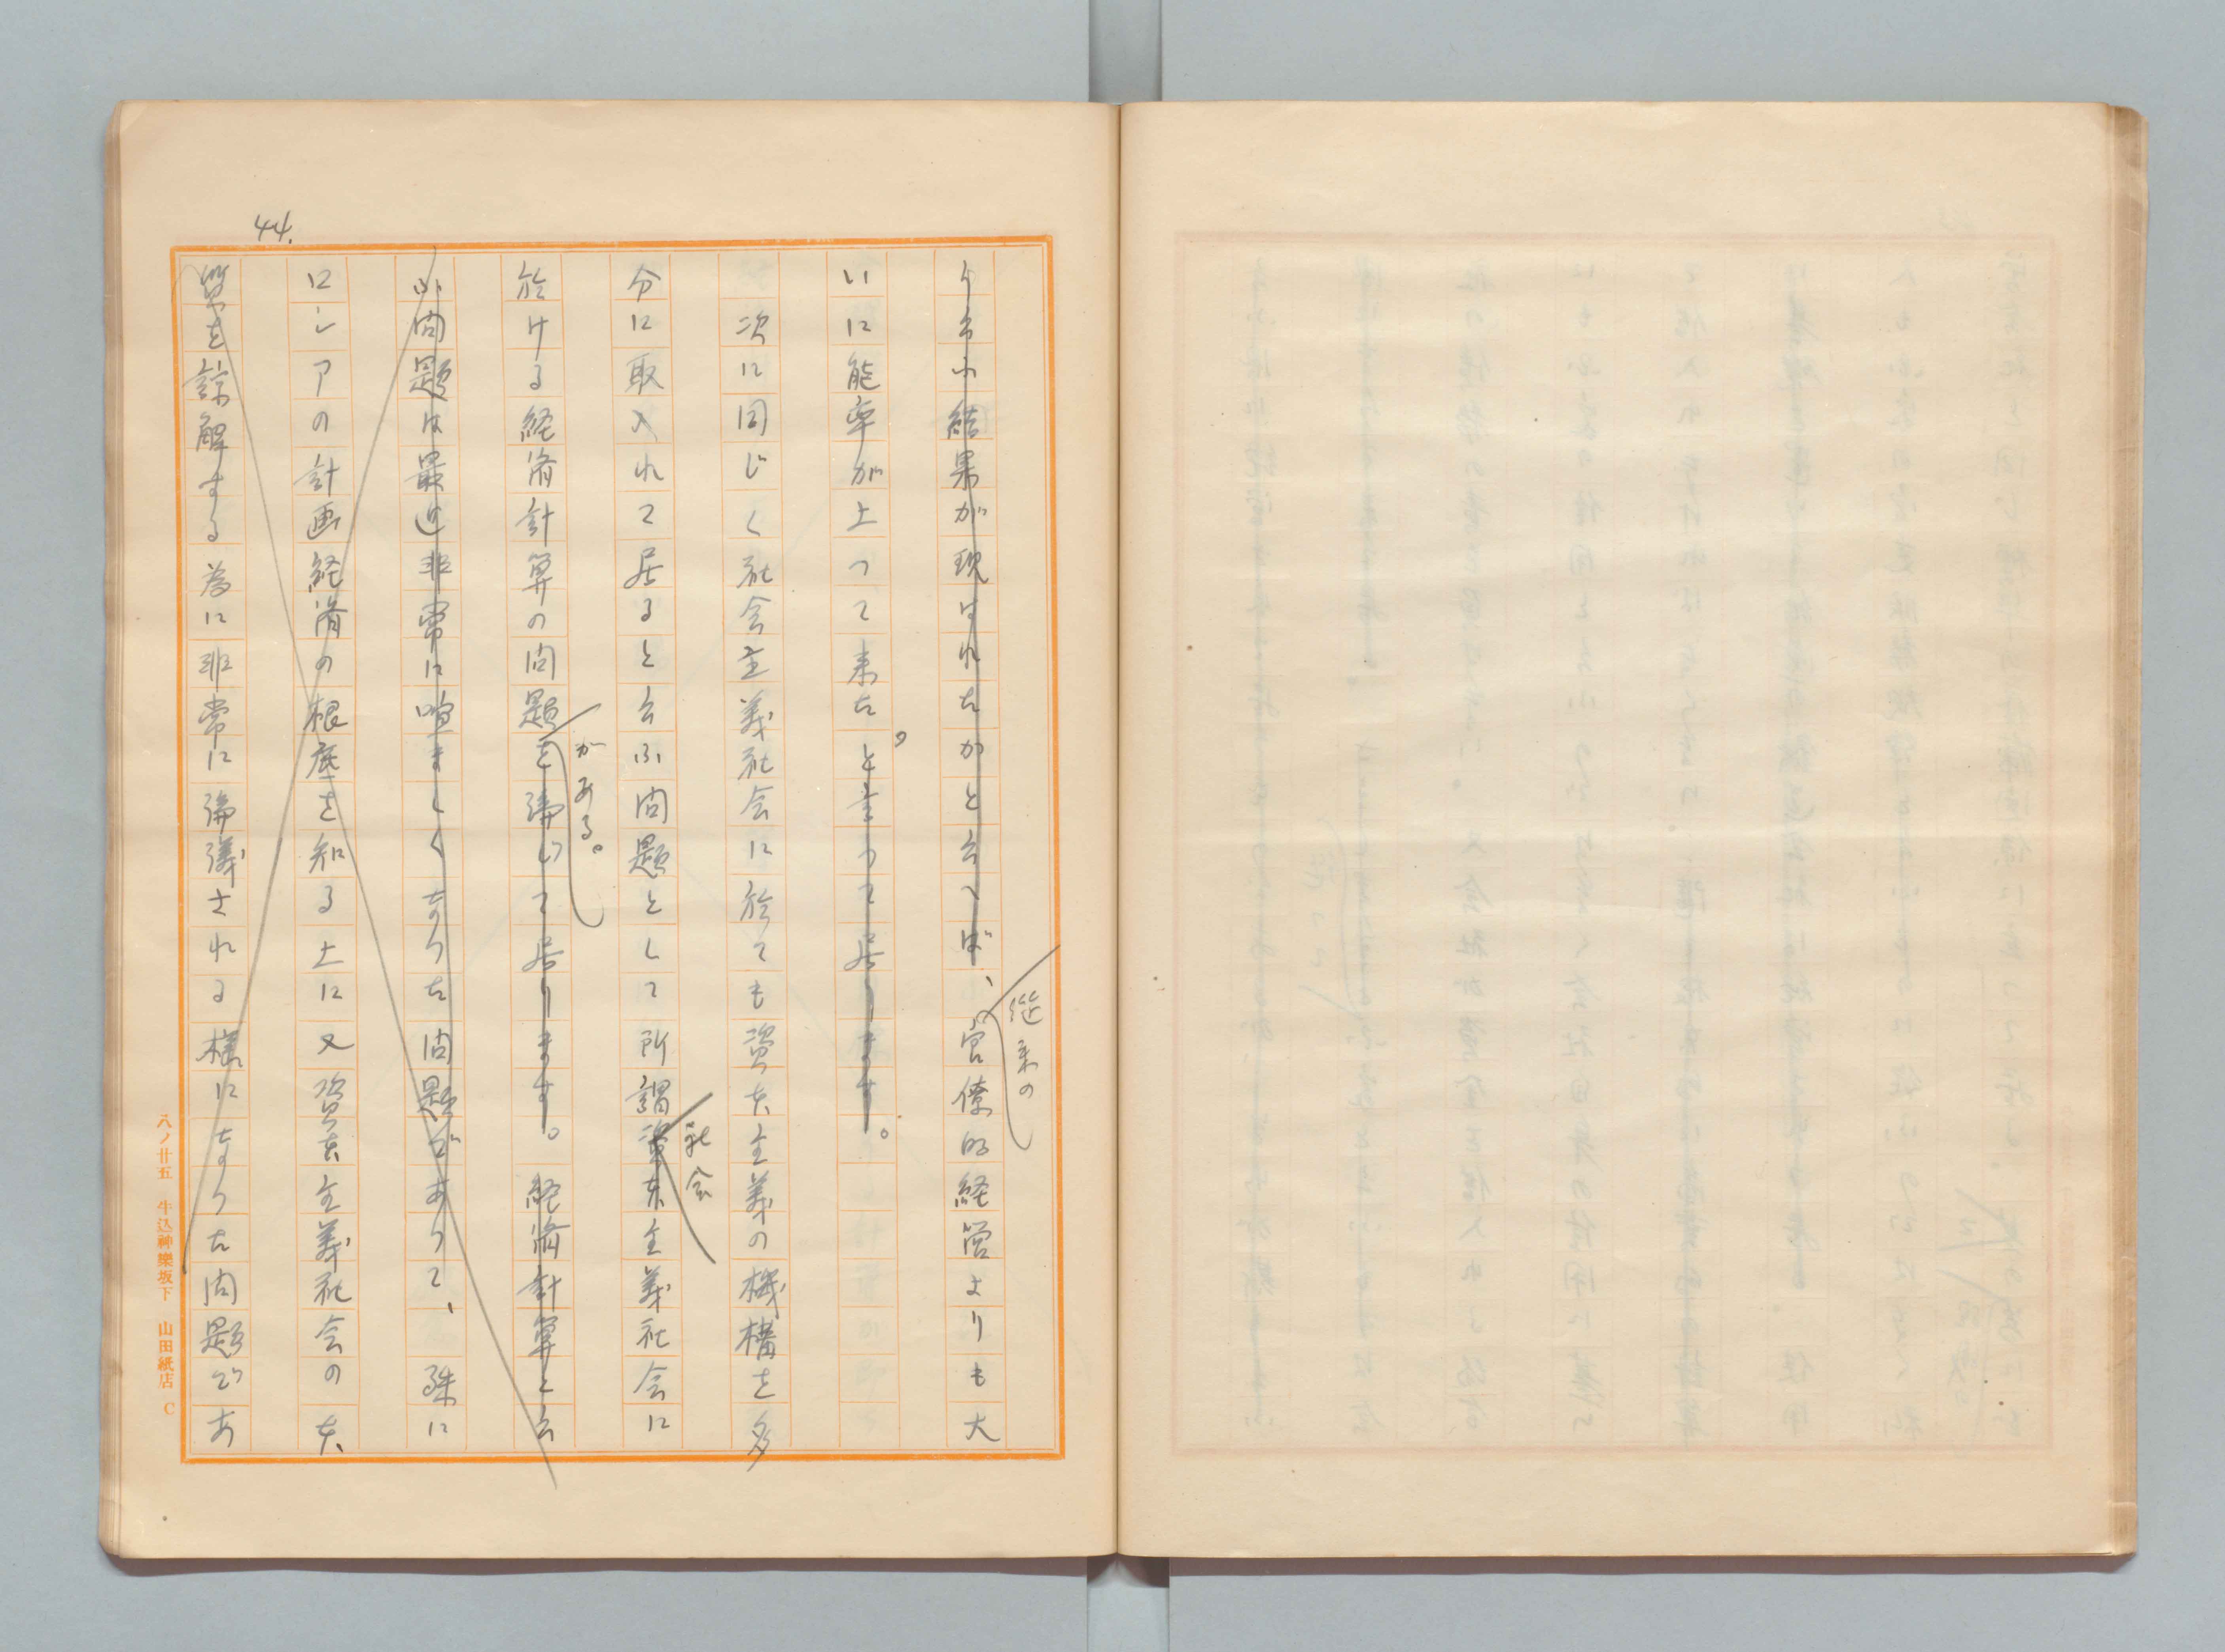 44.
う云ふ結果が現はれたかと云へば、従来の官僚的経営よりも大
いに能率が上つて来た。と言つて居ります。
次に同じく社会主義社会に於ても資本主義の機構を多
分に取入れて居ると云ふ問題として所謂資本社会主義社会に
於ける経済計算の問題がある。を論じて居ります。経済計算と云
ふ問題は最近非常に喧ましくなつた問題であつて、殊に
ロシアの計画経済の根底を知る上に又資本主義社会の本
質を諒解する為に非常に論議される様になつた問題であ
八ノ廿五 牛込神樂坂下 山田紙店 C